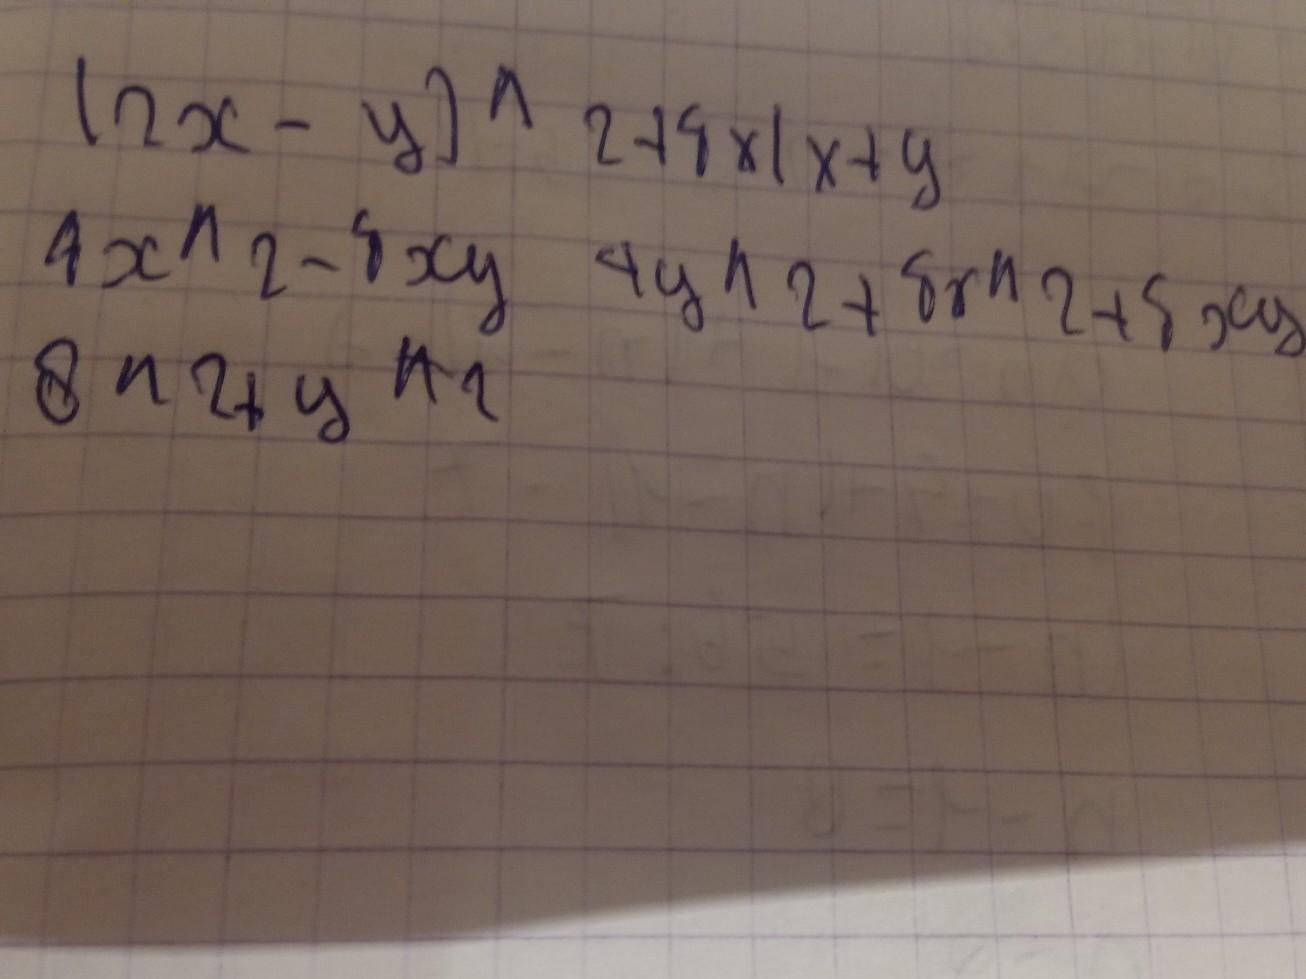 (2x - y) ^ 2+4x(x+y
4x^2-4xy +y^2+4x^2+4xy
8^2+y^2